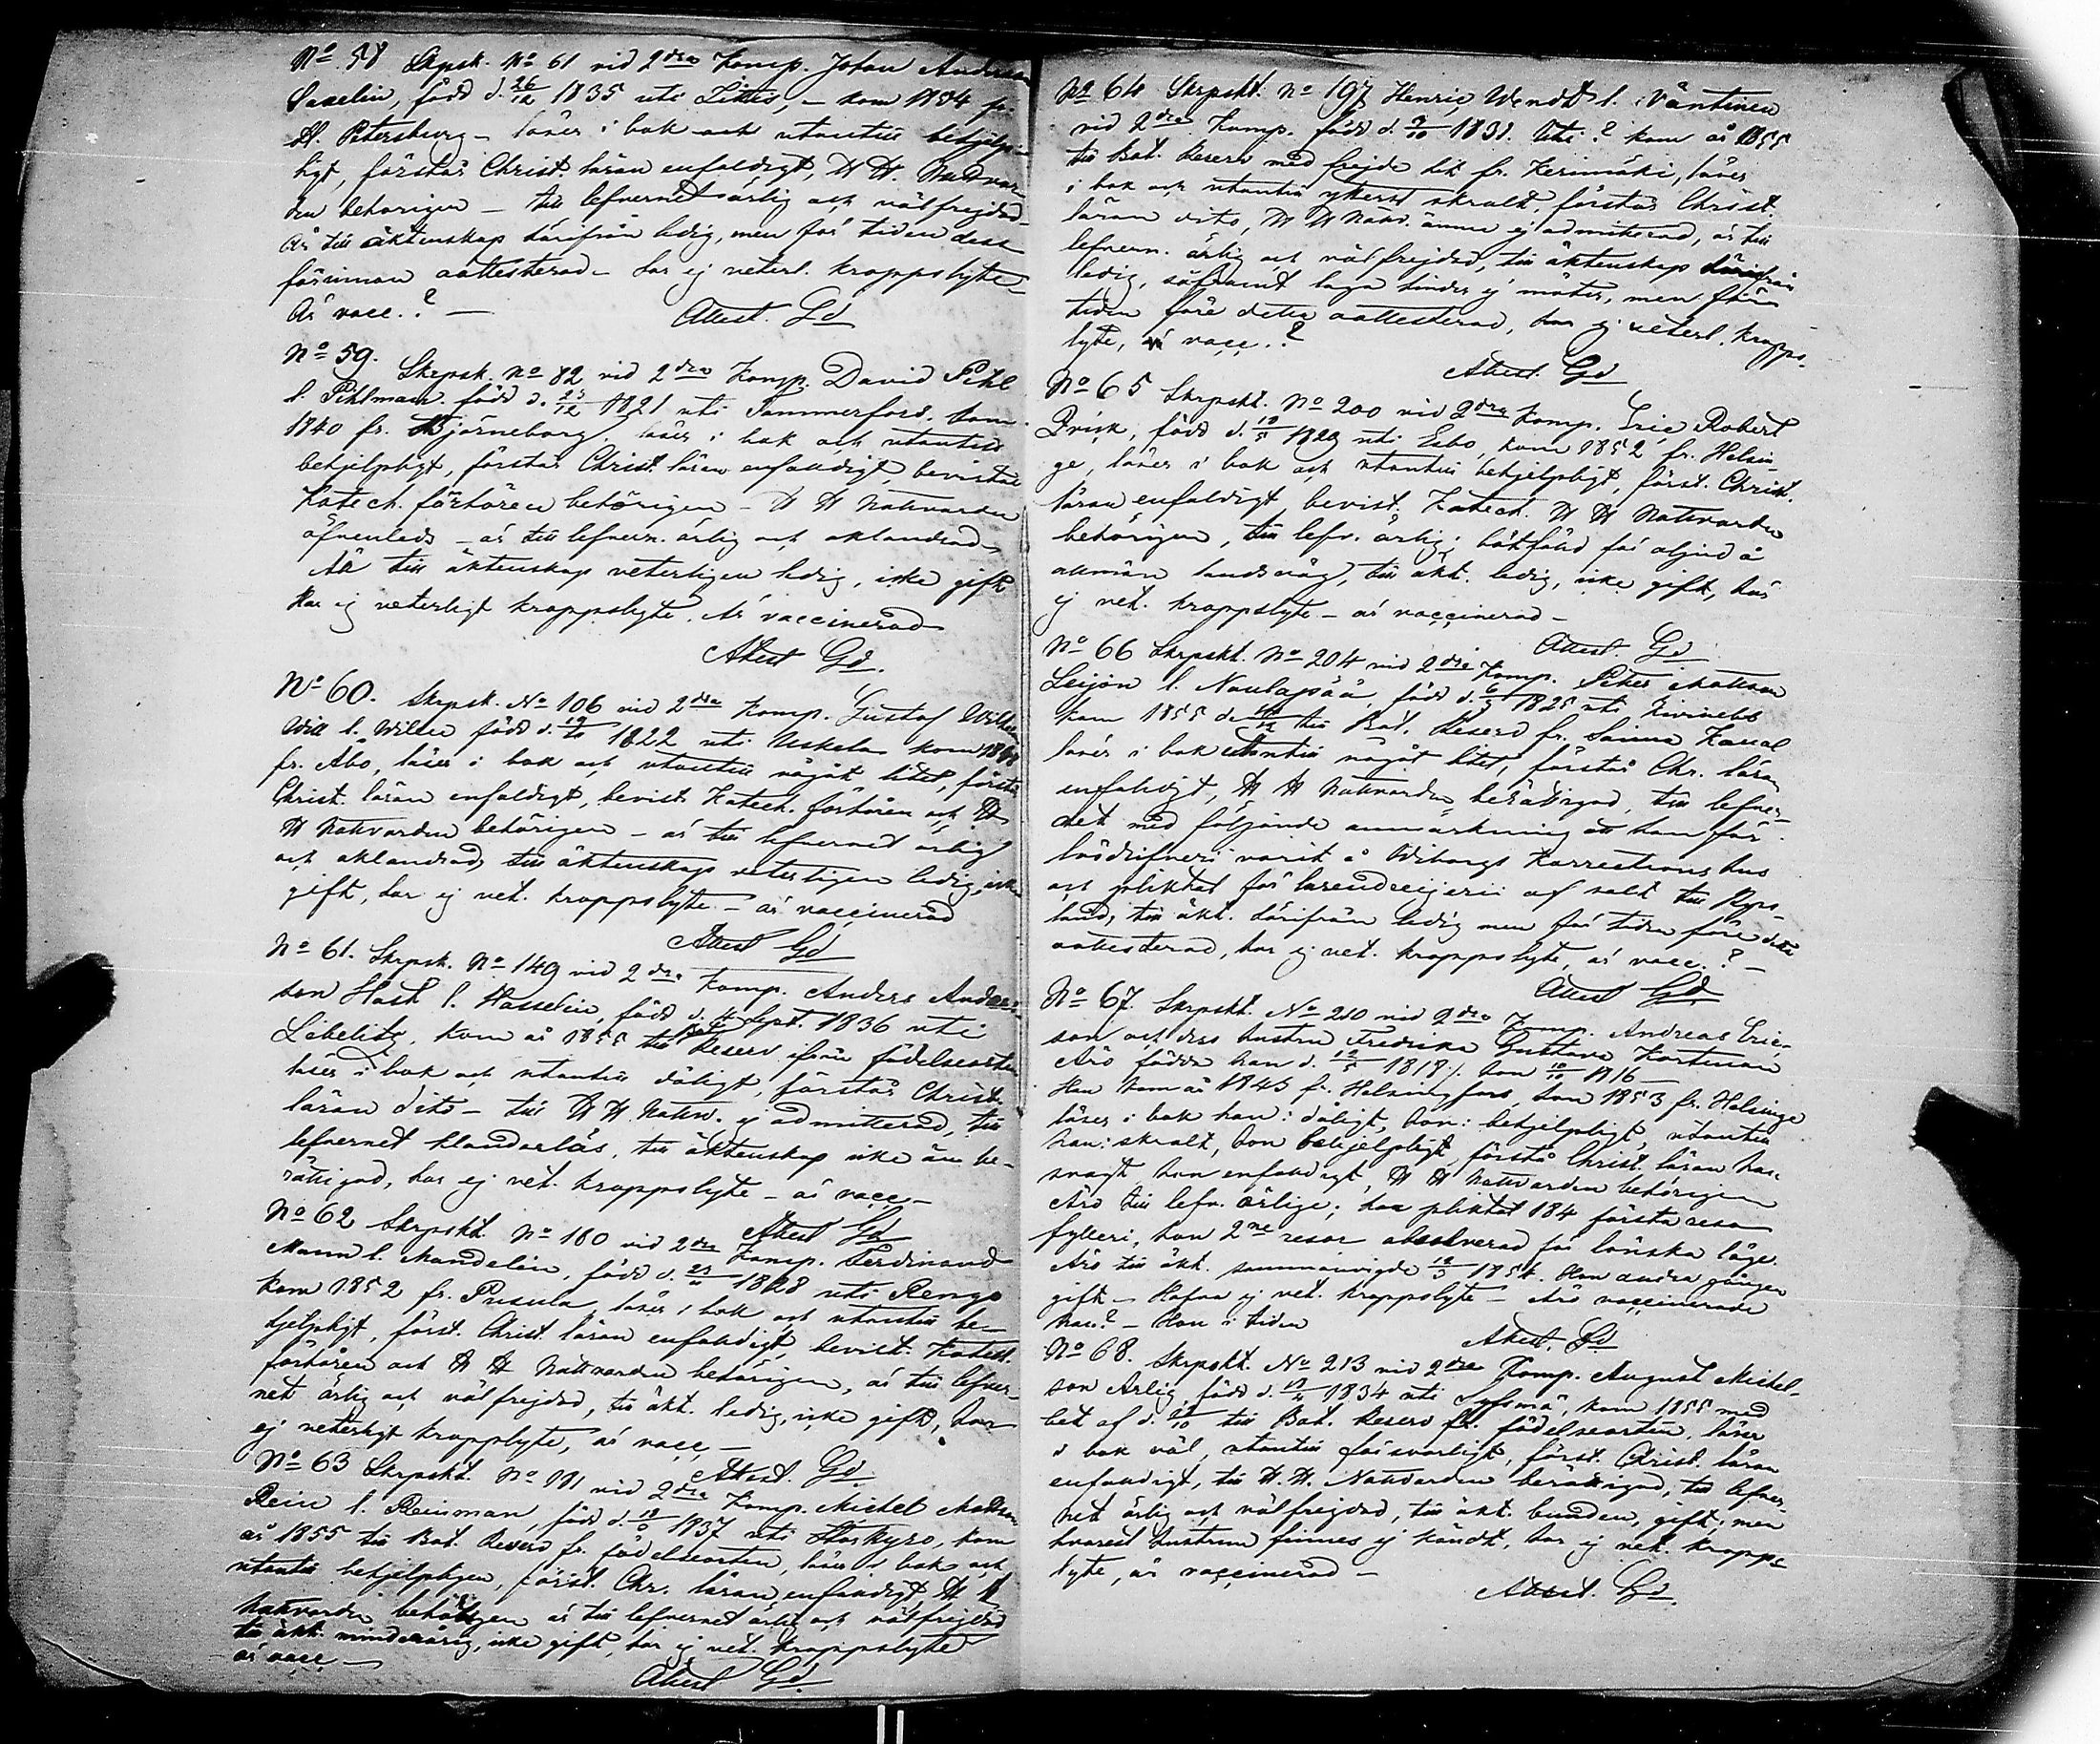 Nº 58 Skpsk. Nº 61 vid 2dra Komp. Johan Andersson
Saxelin, född d. 26/12 1835 uti Littis, – kom 1854 fr.
St. Petersburg – läser i bok och utantill behjelp-
ligt, förstår Christ. läran enfaldigt, H. H. Nattvar-
den behörigen – till lefvernet ärlig och välfrejdad
Är till äktenskap härifrån ledig, men för tiden dess
förinnan oattesterad – har ej veterl. kroppslyte –
Är vacc.? –
Attest. Gd
Nº 59. Skrpsk. Nº 82 vid 2dra Komp. David Pihl
l. Pihlman född d. 23/12 1821 uti Tammerfors. kom
1840 fr. Björneborg. läser i bok och utantill
behjelpligt, förstår Christ. läran enfaldigt, bevistat
Katech. förhören behörigen – H H Nattvarden
äfvenleds – är till lefvern. ärlig och oklandrad
Är till äktenskap veterligen ledig, icke gift
Har ej veterligt kroppslyte. Är vaccinerad
Attest Gd.
Nº 60. Skrpsk. Nº 106 vid 2dra Komp. Gustaf
Will l. Willen född d. 1822 uti Uskela kom
fr. Åbo, läser i bok och utantill något litet, förstår
Christ. läran enfaldigt, bevist. Katech. förhören och H
H Nattvarden behörigen – är till lefvernet ärlig
och oklandrad, till äktenskap veterligen ledig, icke
gift, har ej vet. kroppslyte – är vaccinerad
Attest Gd
Nº 61. Skrpsk. Nº 149 vid 2dra Komp. Anders Anders-
son Hast l. Hasselin, född d. 4 Sept. 1836 uti
Libelitz, kom år 1855 till Bat. Reserv ifrån födelseorten
läser i bok och utantill dåligt, förstår Christ.
läran dito – till H H Nattv. ej admitterad, till
lefvernet klanderlös, till äktenskap icke än be-
rättigad, har ej vet. kroppslyte – är vacc –
Attest Gd
Nº 62 Skrpskt. Nº 160 vid 2dra Komp. Ferdinand
Mann l. Mandelin, född d. 1828 uti Rengo
kom 1852 fr. Pusula, läser i bok och utantill be-
hjelpligt, först. Christ. läran enfaldigt, bevist. Katech.
förhören och H H Nattvarden behörigen, är till lefver-
net ärlig och välfrejdad, till äkt. ledig, icke gift, har
ej veterligt kroppslyte, är vacc –
Attest. Gd.
Nº 63 Skrpskt. Nº vid 2dra Komp. Michel Mattsson
Rein l. Reinman, född d. 1837 uti Storkyro, kom
år 1855 till Bat. Reserv fr. födelseorten, läser i bok och
utantill behjelpligen, först. Chr. läran enfaldigt, H H
Nattvarden behörigen är till lefvernet ärlig och välfrejdad
till äkt. minderårig, icke gift, har ej vet. kroppslyte
är vacc –
Attest Gd.
Nº 64 Skrpskt. Nº 197 Henric Wendt l. Väntinen
vid 2dra Komp. född d. 1831. Uti? kom år 1855
till Bat. Reserv med frejde hit fr. Kerimäki, läser
i bok och utantill ytterst skralt, förstår Christ.
läran dito, H H Nattv. ännu ej admitterad, är till
lefvern. ärlig och välfrejdad, till äktenskap härifrån
ledig, såframt laga hinder ej möter, men för
tiden före detta oattesterad, har ej veterl. kropps-
lyte, är vacc.?
Attest. Gd
Nº 65 Skrpskt. Nº 200 vid 2dra Komp. Eric Robert
Qvick, född d. 1829 uti Esbo, kom 1852 fr. Helsin-
ge, läser i bok och utantill behjelpligt, först. Christ.
läran enfaldigt, bevist. Katech. H H Nattvarden
behörigen, till lefv. ärlig; bötfälld för oljud å
allmän landsväg, till äkt. ledig, icke gift, har
ej vet. kroppslyte – är vaccinerad –
Attest. Gd
Nº 66 Skrpskt. Nº 204 vid 2dra Komp. Petter Mattsson
Leijon l. Naulapää, född d. 1825 uti Kivinebb
kom 1855 till Bat. Reserv fr. Saima Kanal
läser i bok utantill något litet, förstår Chr. läran
enfaldigt, H H Nattvarden berättigad, till lefver-
net med följande anmärkning att han för
lösdrifveri varit å Wiborgs Korrections hus
och pliktat för lurendrejeri af salt till Ryss-
land, till äkt. härifrån ledig men för tiden före detta
oattesterad, har ej vet. kroppslyte, är vacc.? –
Attest Gd.
Nº 67. Skrpskt. Nº 210 vid 2dra Komp. Andreas Erics-
son och dess hustru Fredrika Gustava Kortman
Äro födda han d. 1818, hon 1816 –
Han kom år 1845 fr. Helsingfors, hon 1853 fr. Helsinge
läser i bok han: dåligt, hon: behjelpligt, utantill
han: skralt, hon behjelpligt, förstå Christ. läran han
svagt hon enfaldigt, H H Nattvarden behörigen
Äro till lefv. ärlige; han pliktat 184 första resan
fylleri, hon 2ne resor absolverad för lönska läge.
Äro till äkt. sammanvigde 1854. Hon andra gången
gift – Hafva ej vet. kroppslyte – Äro vaccinerade
han? – Hon i tiden
Attest. Gd
Nº 68. Skrpskt. Nº 213 vid 2dra Komp. August Michel-
son Arlig, född d. 1834 uti Sysmä, kom 1855 med
bet. af d. till Bat. Reserv fr. födelseorten, läser
i bok väl, utantill försvarligt, först. Christ. läran
enfaldigt, till H. H. Nattvarden berättigad, till lefver-
net ärlig och välfrejdad, till äkt. bunden, gift, men
hvarest hustrun finnes ej kändt, har ej vet. kropps
lyte, är vaccinerad –
Attest. Gd.